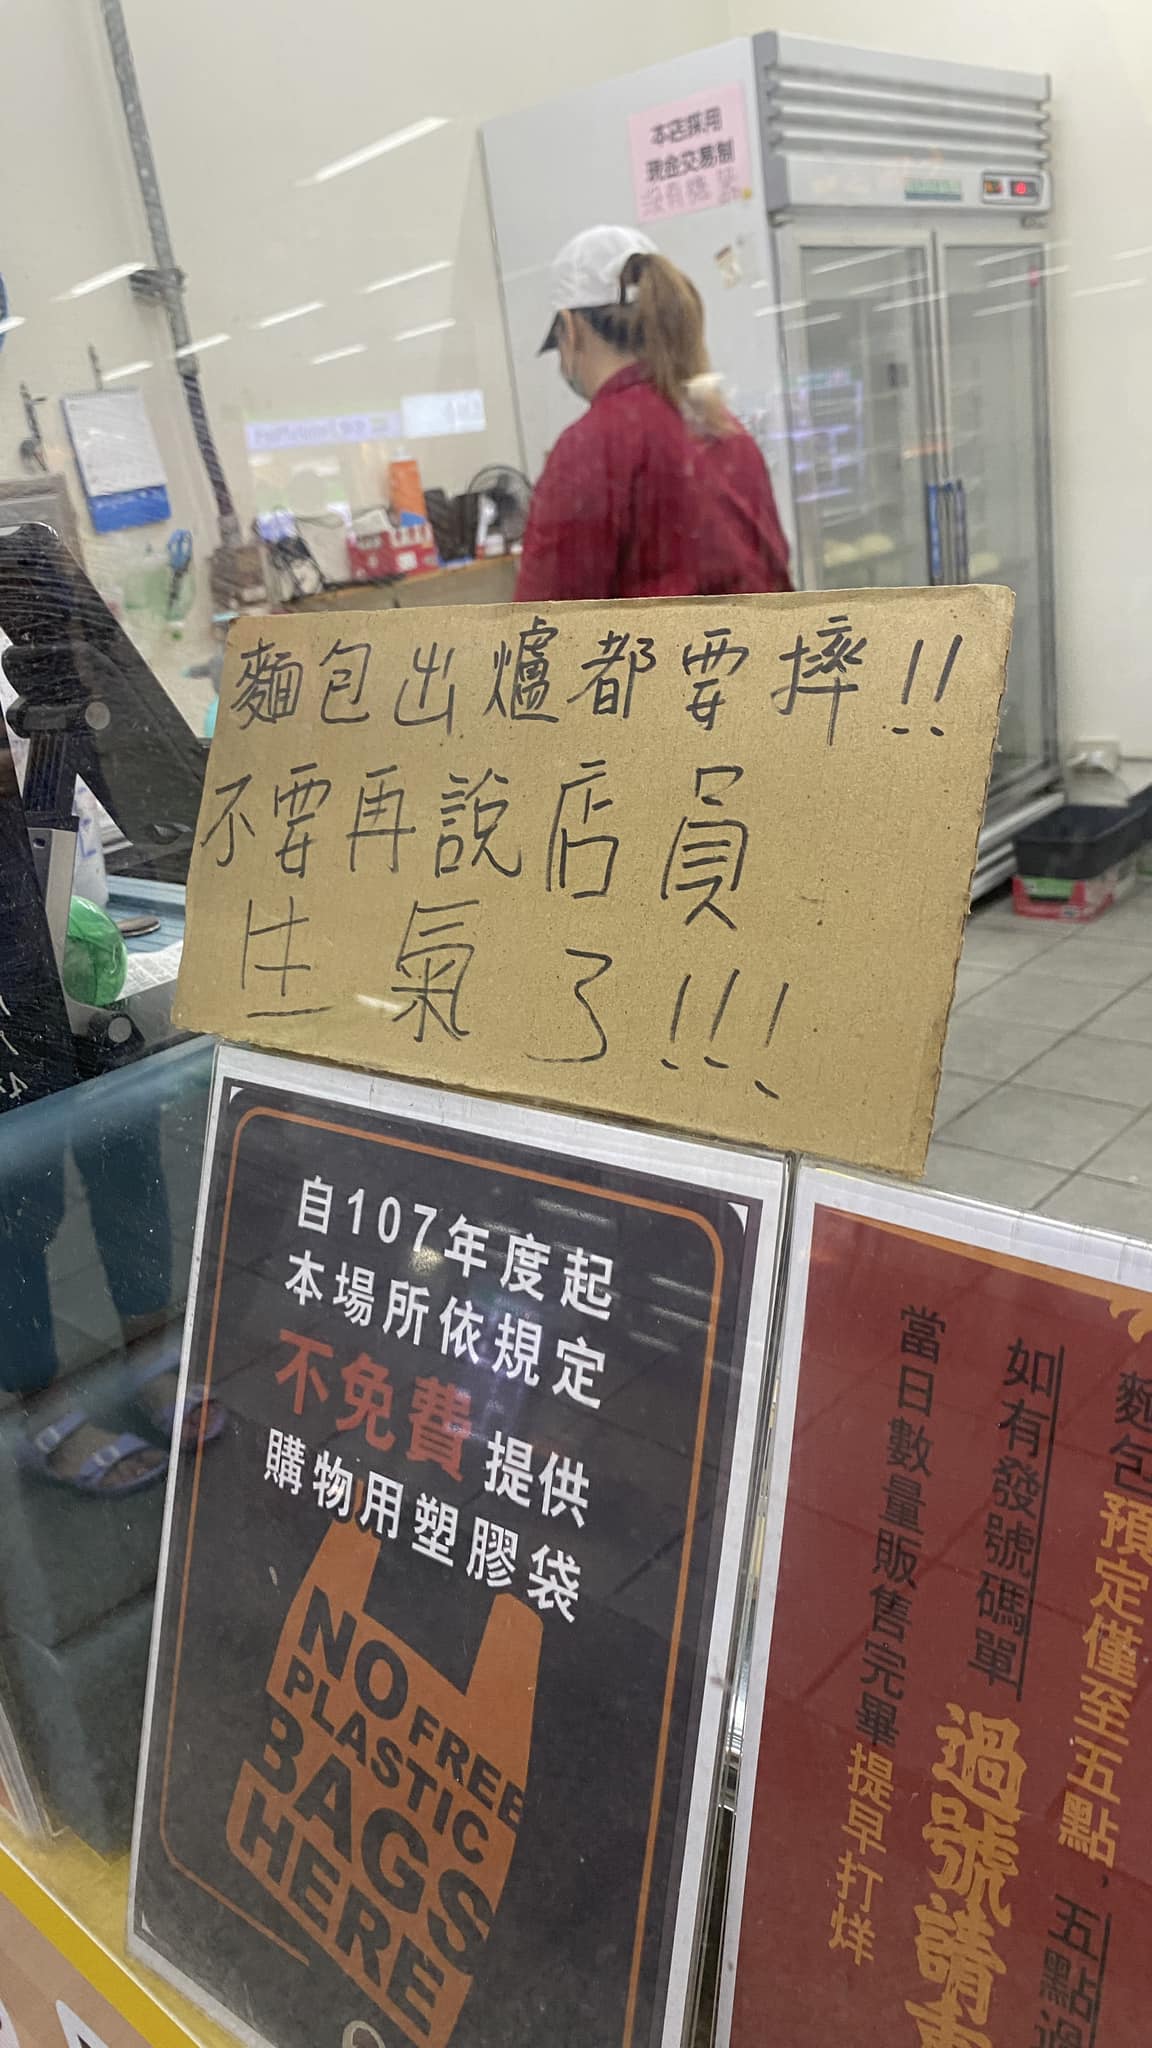 本店採用
現金交易制
沒有發
麵包出爐都要摔!!
不要再說店員
生氣了!!!
自107年度起
本場所依規定
不免費提供
購物用塑膠袋
NO FREE
PLASTIC
BAGS
HERE
麵包預定僅至五點，五點過
如有發號碼單
過號請
當日數量販售完畢提早打烊